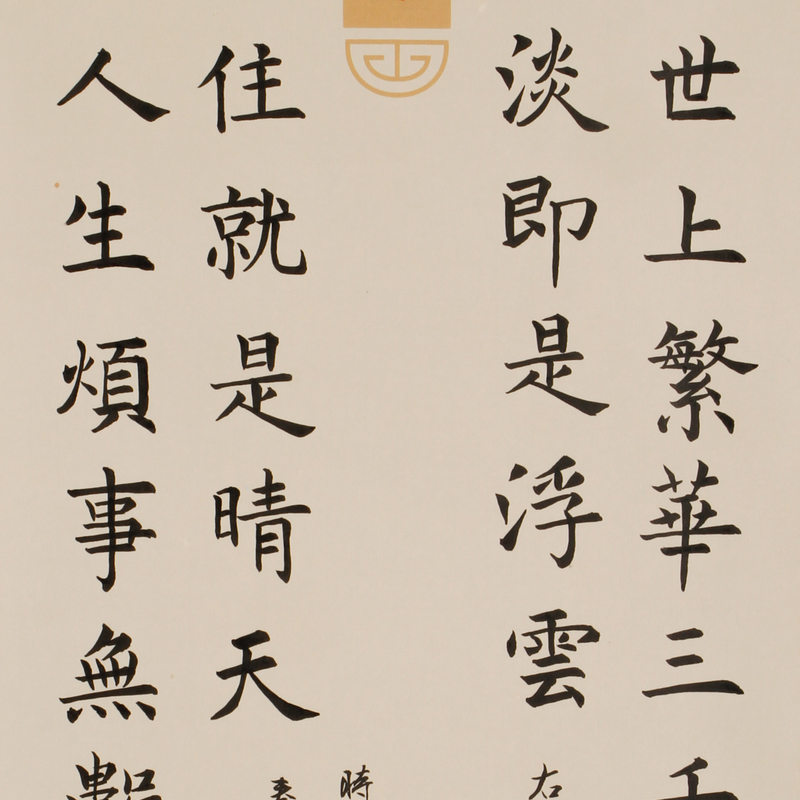 世上繁華三
淡即是浮雲
右
人生煩事無
住就是晴天
時